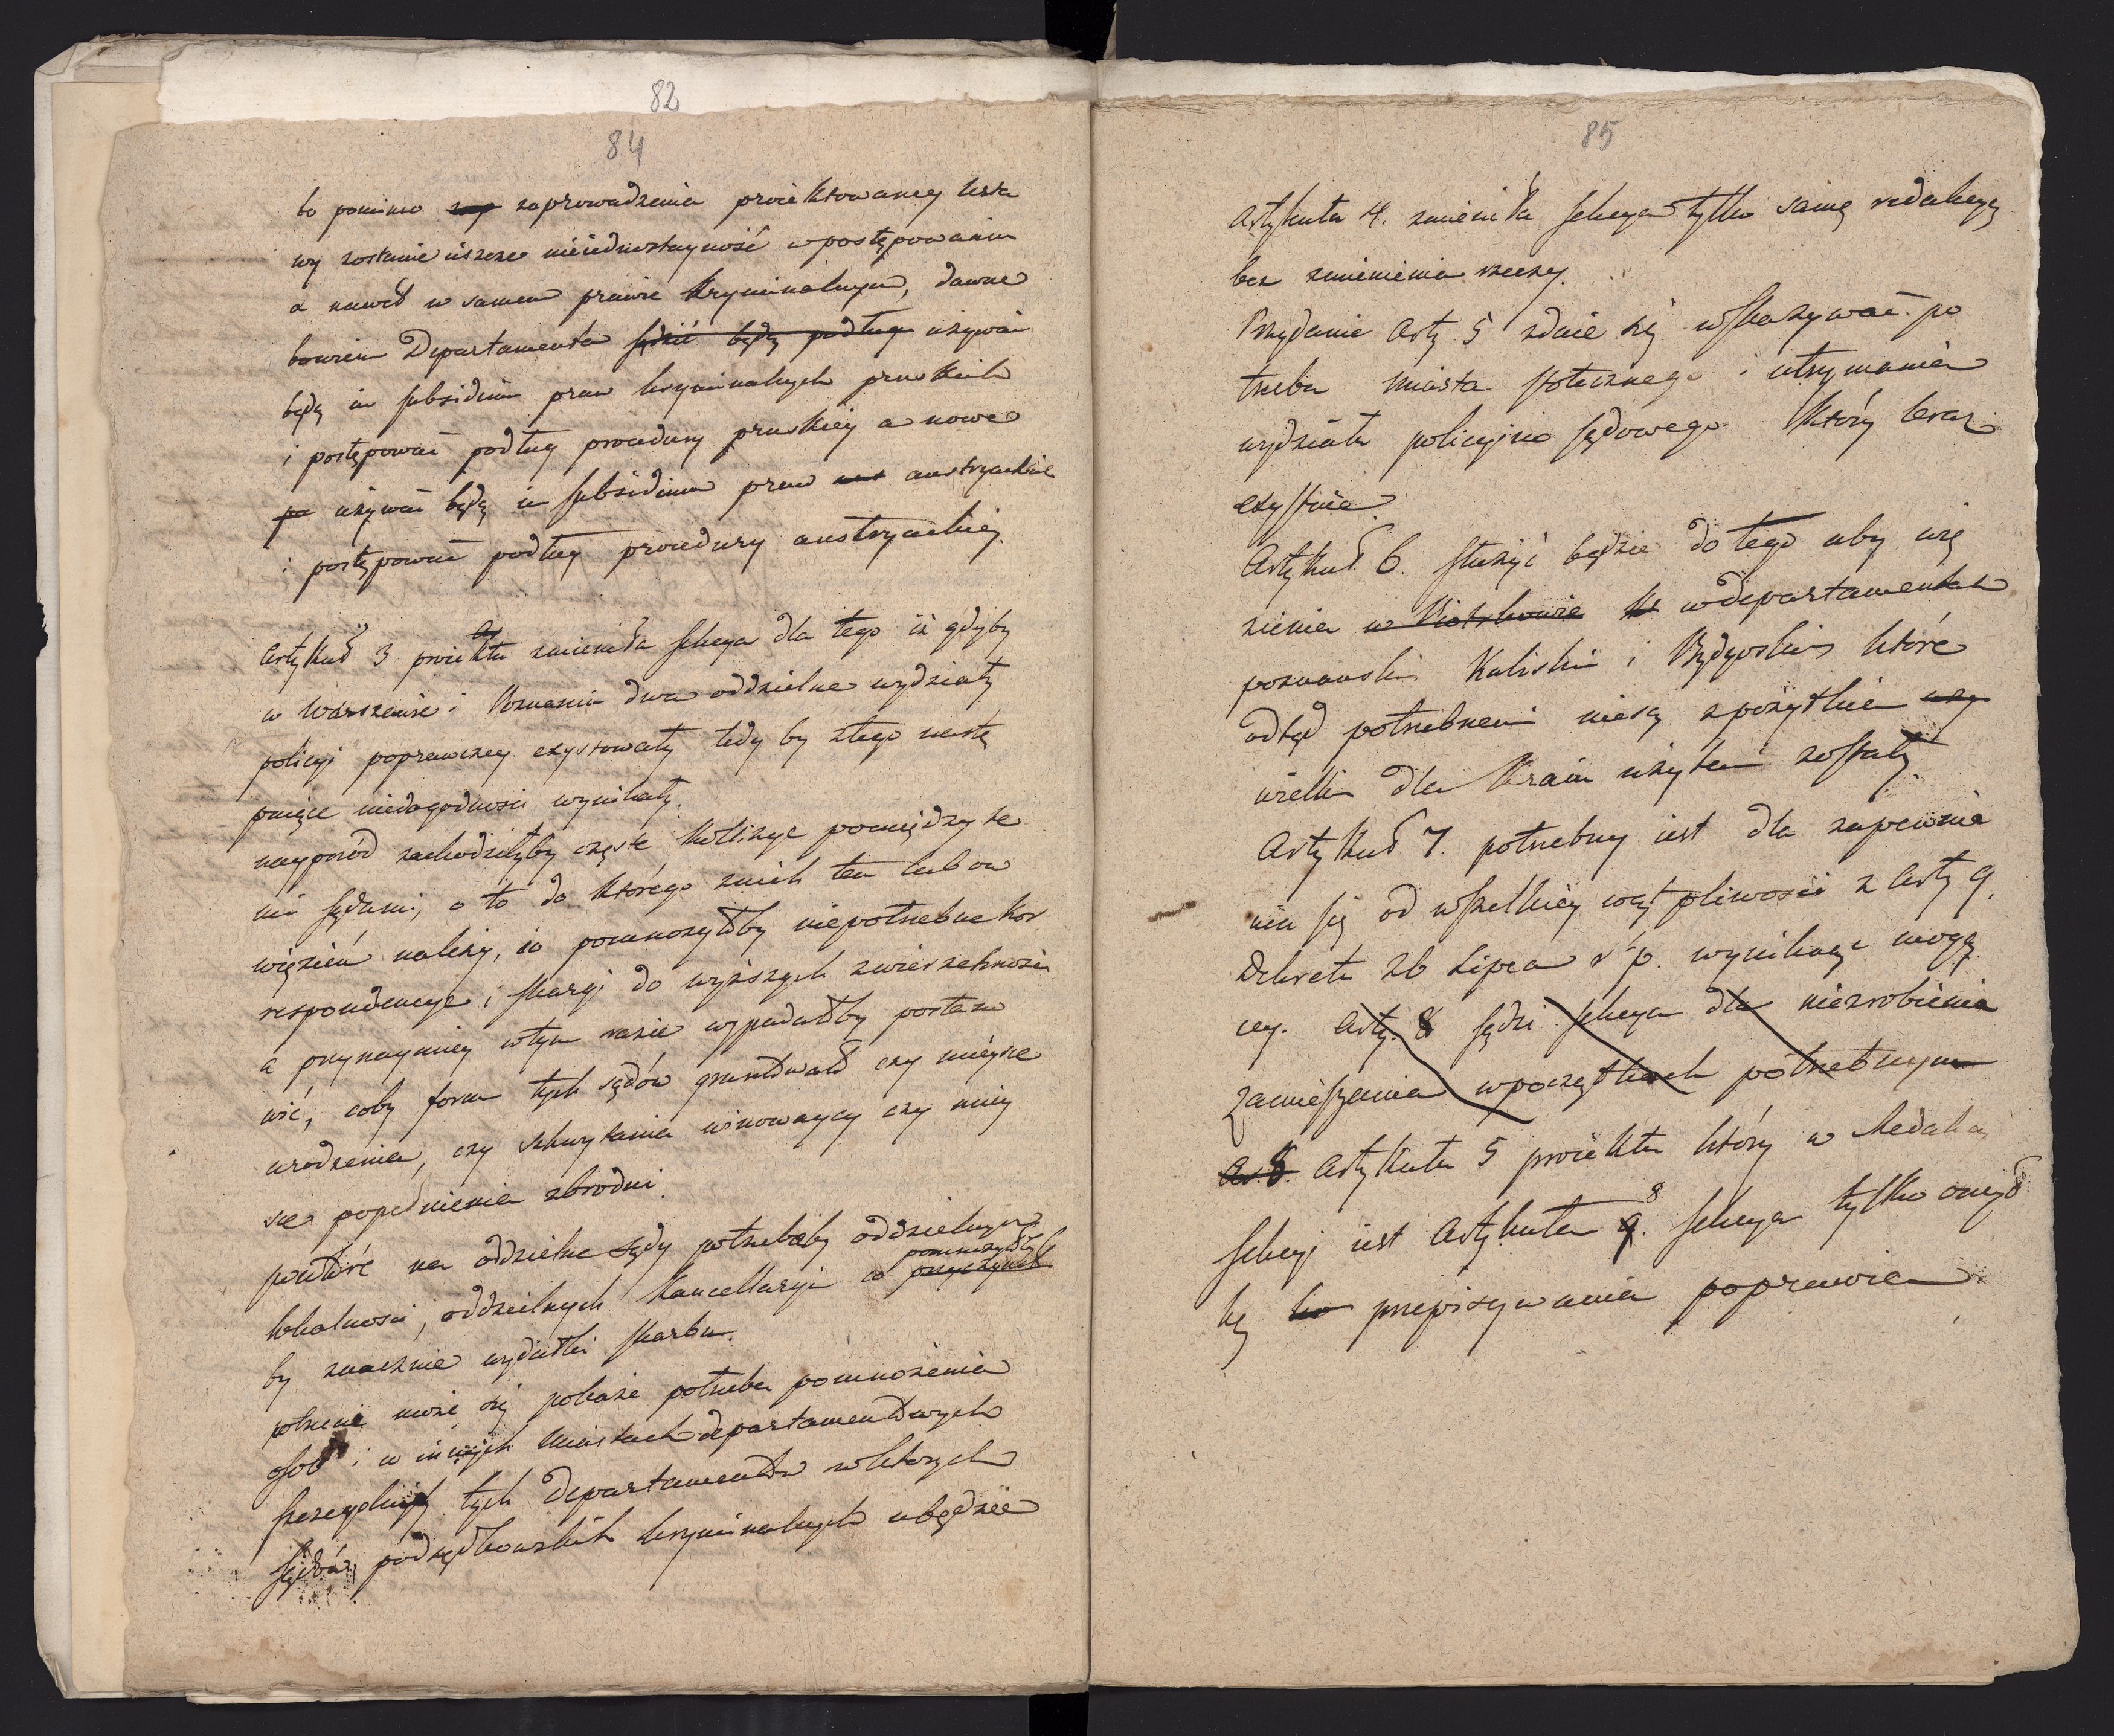 82
84
to pomimo zap zaprowadzenia proiektowaney usta
wy zostanie ieszcze nieiednostayność w postępowaniu
a nawet w samem prawie Kryminalnym, dawne
bowiem Departamenta sądzić będą podług używać
będą in subsidium praw kryminalnych pruskich
i postępować podług procedury pruskiéy a nowe
po używać będą in subsidium praw aus austryackich
i postępować podług procedury austryackiéy.
Artykuł 3 proiektu zmieniła Sekcya dla tego iż gdyby
w Warszawie i Poznaniu dwa oddzielne wydziały
policyi poprawczey exystowały tedy by z tego nastę
puiące niedogodności wynikały.
naypród zachodziłyby częste Kollizye pomiędzy te
mi sądami, o to do którego z nich ten lub ow
więzień należy, co pomnożyłoby niepotrzebne kor
respondencye i skargi do wyższych zwierzchności
a przynaymniey w tym razie wypadałoby postano
wić, coby forum tych sądów gruntował czy mieysce
urodzenia, czy schwytania winowaycy czy miey
sce popełnienia zbrodni.
powtóre na oddzielne sądy potrzebaby oddzielnych
lokalności, oddzielnych Kancellaryi co przyczyniło pomnożyło
by znacznie wydatki skarbu.
potrzecie może się pokaże potrzeba pomnożenia
osob i w innych Miastach departamentowych
szczególniéy tych Departamentów w których
Sądów podsędkowskich kryminalnych nie będzie
85
Artykułu 4. zmieniła Sekcya tylko samę redakcyą
bez zmienienia rzeczy.
Przydanie Arty 5 zdaie się wskazywać po
trzeba miasta stołecznego i utrzymania
wydziału policyino sądowego Który teraz
exystuie.
Artykuł 6. służyć będzie do tego aby wię
zienia w Piotrkowie w departamentach
poznański Kaliskim i Bydgoskim które
odtąd potrzebnemi nie są z pożytkiem wsz
wielkim dla Kraiu użytemi zostały
Artykuł 7. potrzebny iest dla zapewnie
nia się od wszelkiéy wątpliwości z Arty 9.
Dekretu 26 Lipca r. p. wynikaiąc mogą
cey. Arty. 8 sądzi Sekcya dla niezrobienia
zamięszania w początkach potrzebnym
Ar. 8. Artykułu 5 proiektu który w Redakcyi
Sekcyi iest Artykułem 9. 8 Sekcya tylko omył
kę ko przepisywania poprawia